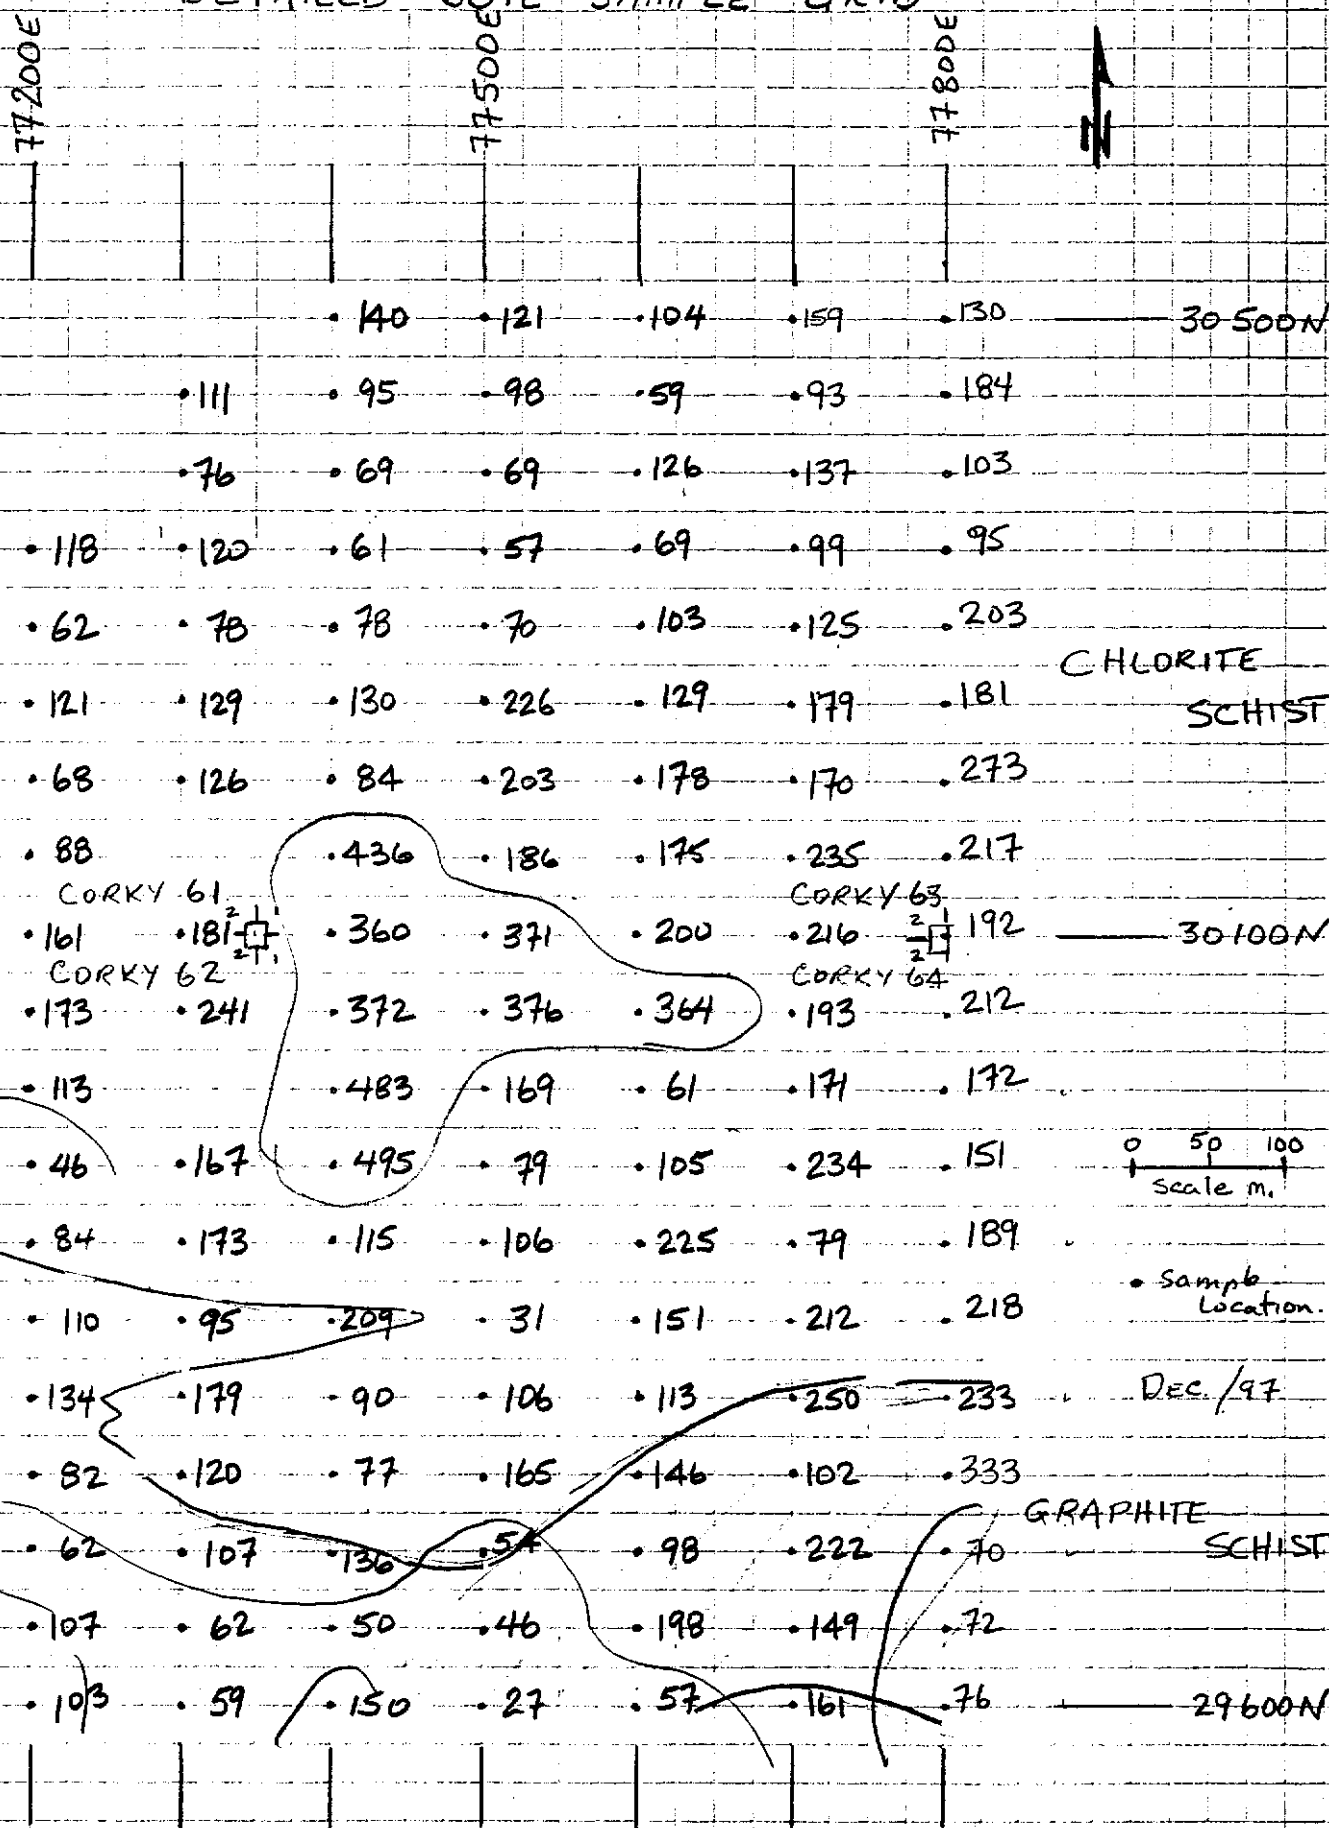 DETAILED SOIL SAMPLE GRID
77200E 77500E 77800E
N
140 121 104 159 130 30500N
111 95 98 59 93 184
76 69 69 126 137 103
118 120 61 57 69 99 95
62 78 78 70 103 125 203
CHLORITE
121 129 130 226 129 179 181 SCHIST
68 126 84 203 178 170 273
88 436 186 175 235 217
CORKY 61 CORKY 63
2 1 2 1
161 181 360 371 200 216 192 30100N
2 1 2
CORKY 62 CORKY 64
173 241 372 376 364 193 212
113 483 169 61 171 172
0 50 100
46 167 495 79 105 234 151
Scale m.
84 173 115 106 225 79 189
• Sample
Location.
110 95 209 31 151 212 218
134 179 90 106 113 250 233 DEC./97
82 120 77 165 146 102 333
GRAPHITE
62 107 136 54 98 222 70 SCHIST
107 62 50 46 198 149 72
103 59 150 27 57 161 76 29600N